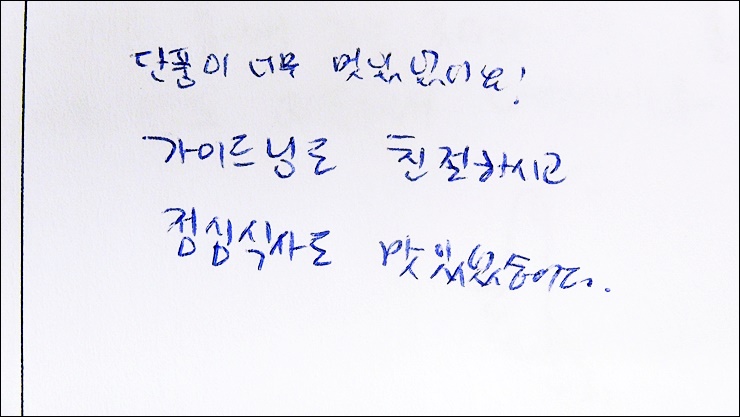 단풍이 너무 멋있었어요!
가이드님도 친절하시고
점심식사도 맛있었습니다.